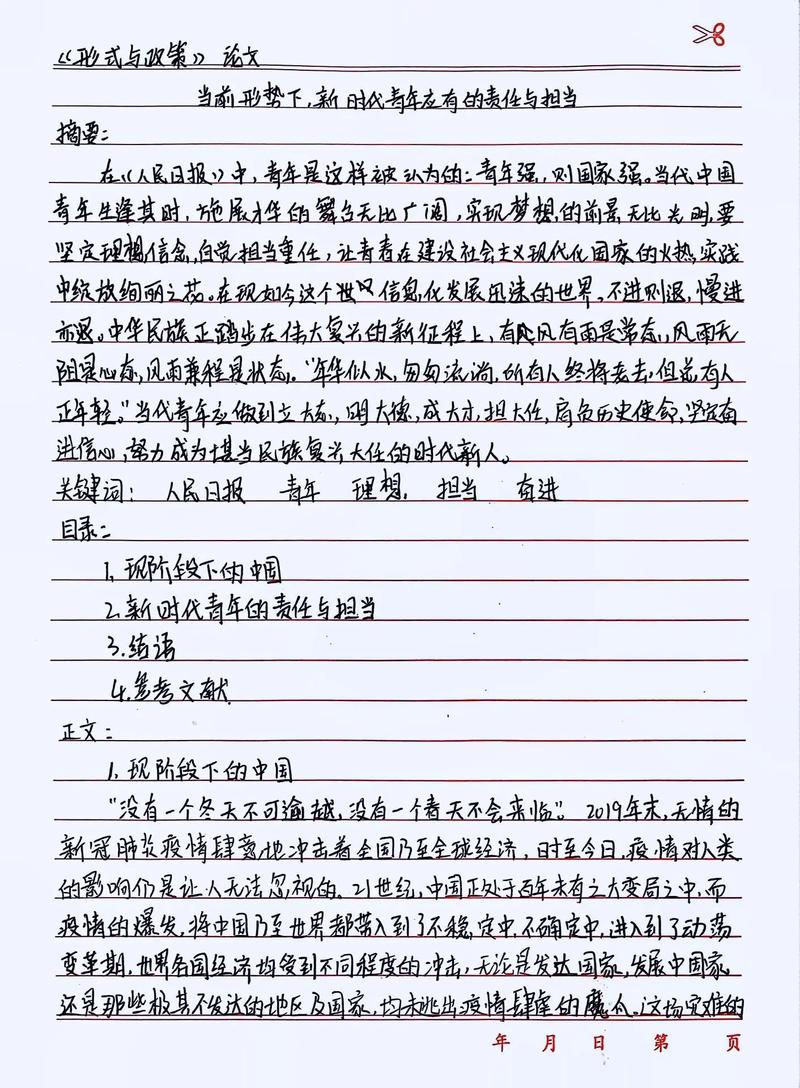 《形式与政策》 论文
当前形势下,新时代青年应有的责任与担当
摘要:
在《人民日报》中,青年是这样被认为的:青年强,则国家强。当代中国
青年生逢其时,施展才华的舞台无比广阔,实现梦想的前景无比光明,要
坚定理想信念,自觉担当重任,让青春在建设社会主义现代化国家的火热实践
中绽放绚丽之花。在现如今这个世 信息化发展迅速的世界,不进则退,慢进
亦退。中华民族正踏步在伟大复兴的新征程上,有风有雨是常态,风雨无
阻是心态,风雨兼程是状态。“年华似水,匆匆流淌,所有人终将老去,但总有人
正年轻。”当代青年应做到立大志,明大德,成大才,担大任,肩负历史使命,坚定奋
进信心,努力成为堪当民族复兴大任的时代新人。
关键词: 人民日报 青年 理想 担当 奋进
目录:
1.现阶段下的中国
2.新时代青年的责任与担当
3.结语
4.参考文献
正文:
1.现阶段下的中国
“没有一个冬天不可逾越,没有一个春天不会来临”。2019年末,无情的
新冠肺炎疫情肆意地冲击着全国乃至全球经济,时至今日,疫情对人类
的影响仍是让人无法忽视的。21世纪,中国正处于百年未有之大变局之中,而
疫情的爆发,将中国乃至世界都带入到了不稳定中,不确定中,进入到了动荡
变革期,世界各国经济均受到不同程度的冲击,无论是发达国家,发展中国家
还是那些极其不发达的地区及国家,均未逃出疫情肆虐的魔爪。这场灾难的
年 月 日 第 页